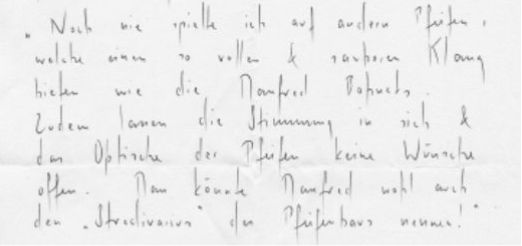 „Noch nie spielte ich auf andern Pfeifen,
welche einen so vollen & sauberen Klang
bieten wie die Manfred
Zudem lassen die Stimmung in sich &
das Optische der Pfeifen keine Wünsche
offen. Man könnte Manfred wohl auch
den „Stradivarius" des Pfeifenbaus nennen!"